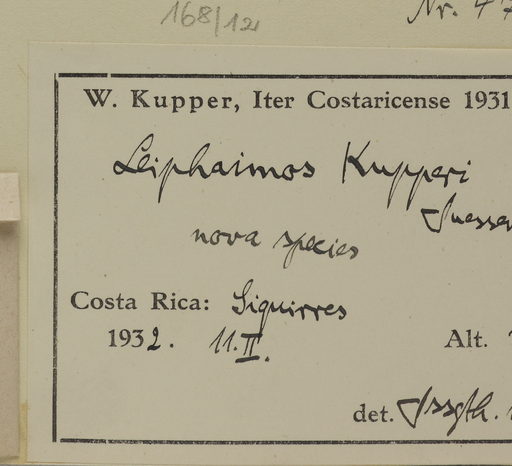 168/121
Nr. 47
W. Kupper, Iter Costaricense 1931
Leiphaimos Kupperi
Suessen
nova species
Costa Rica: Siquirres
1932. 11.II.
Alt.
det. Sssgth.